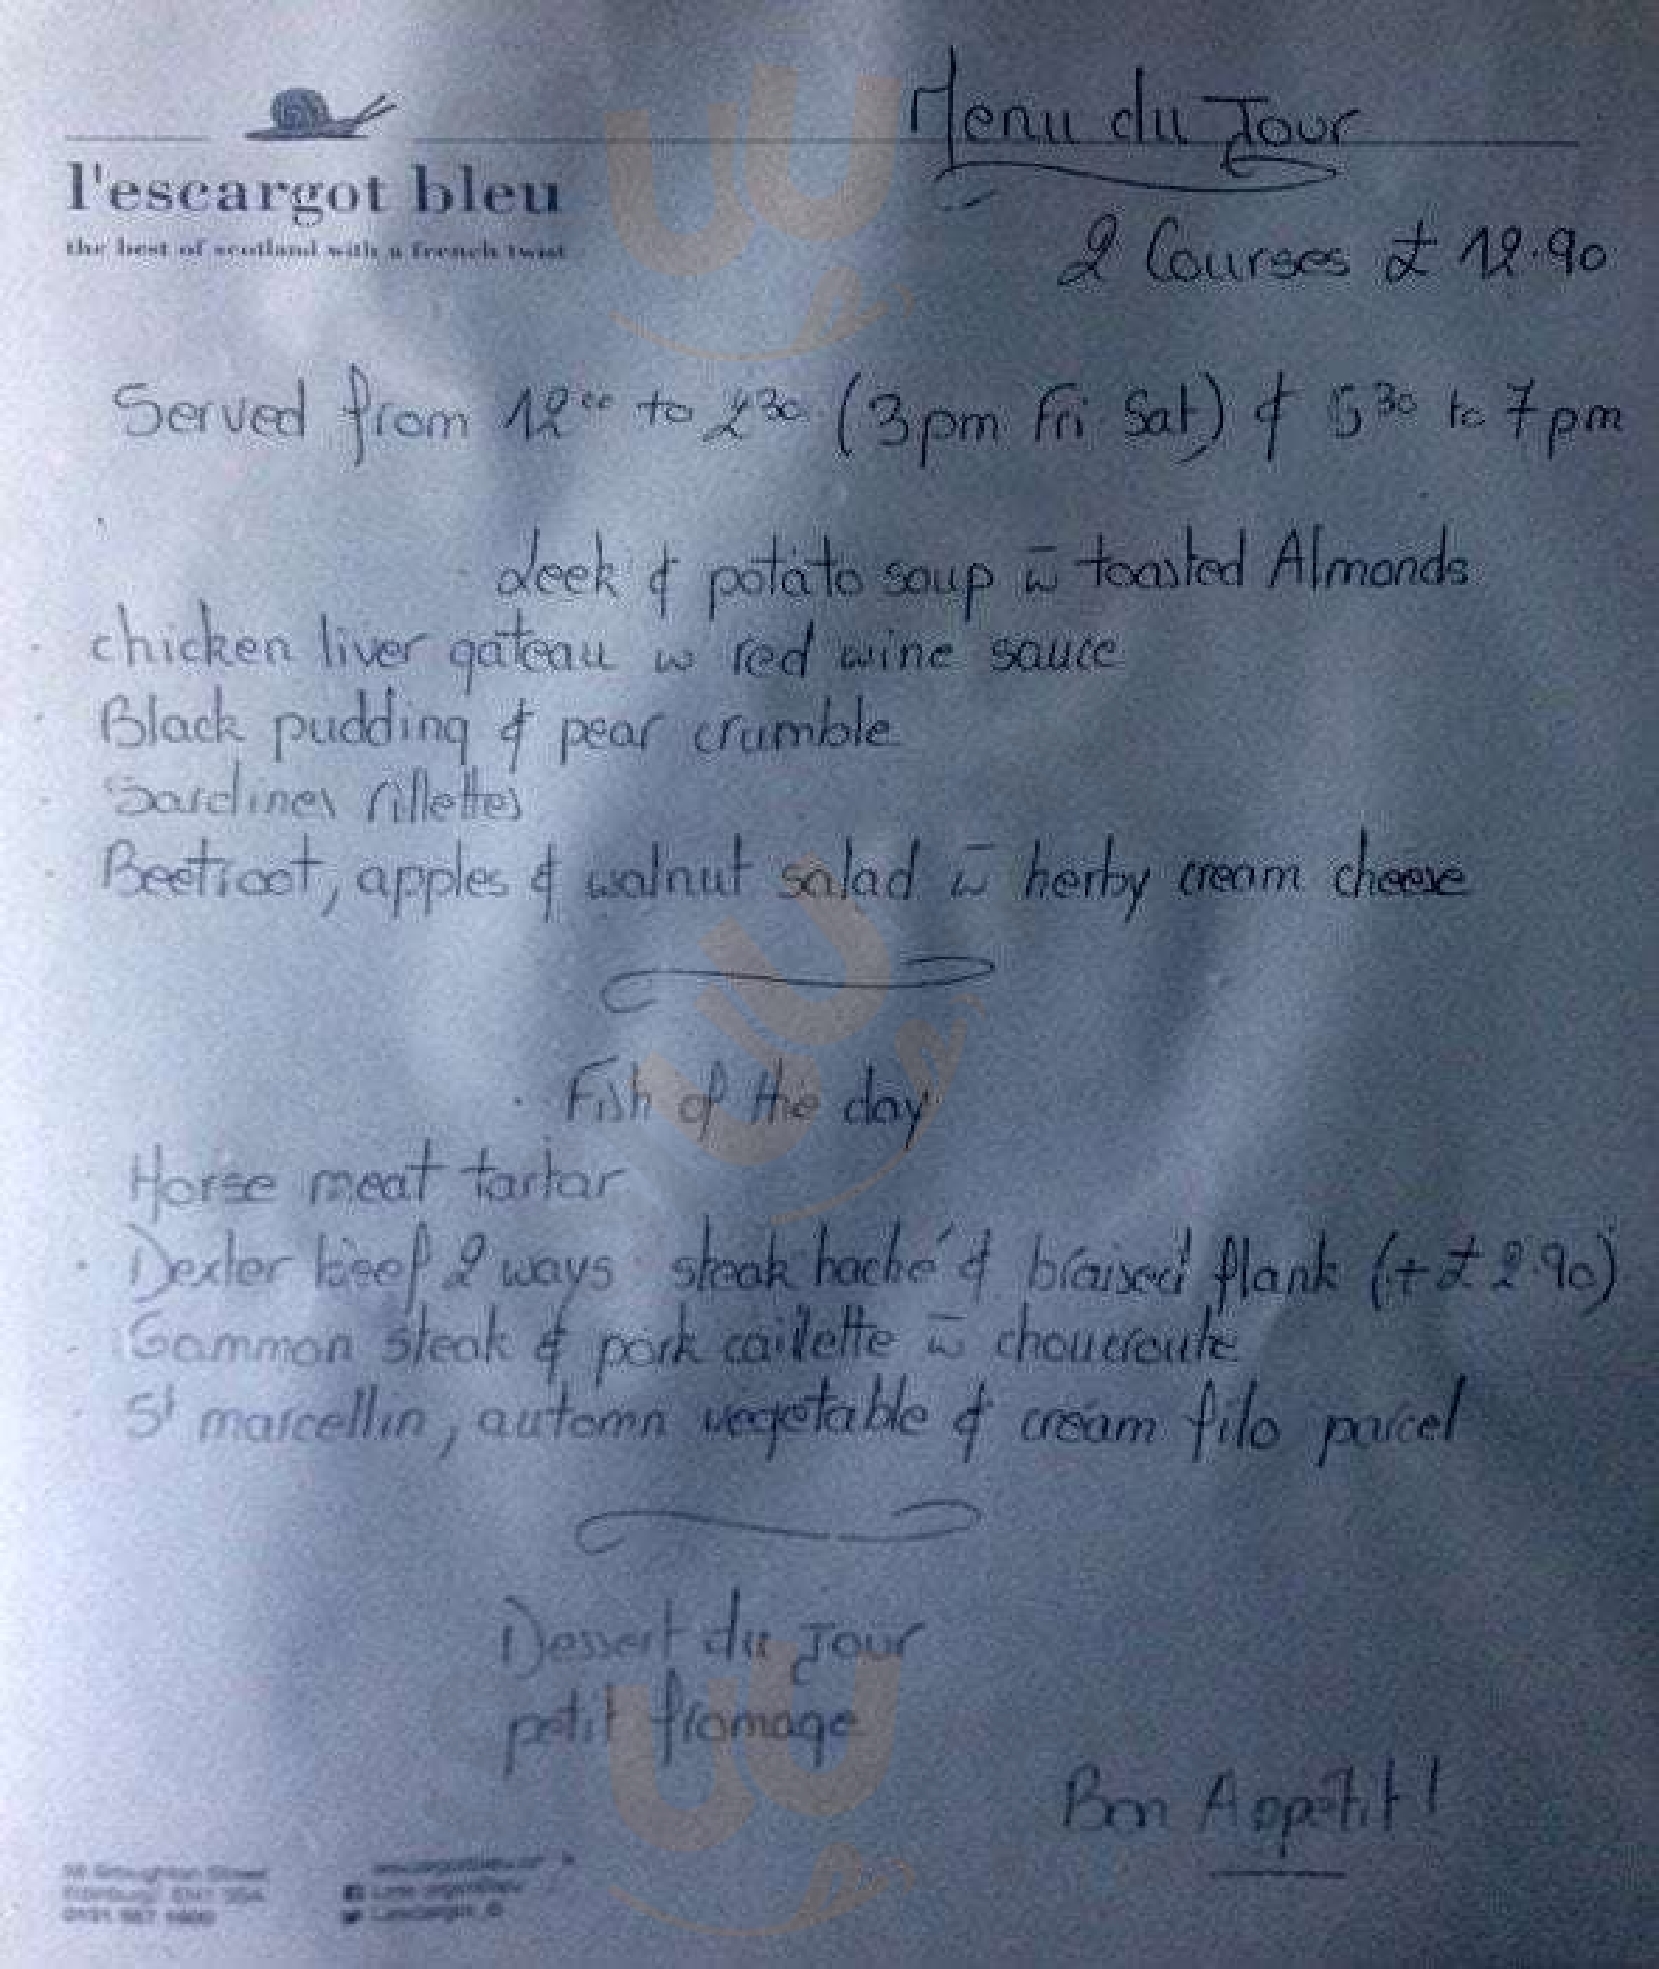 Menu du Jour
l'escargot bleu
the best of scotland with a french twist
2 Courses £ 12.90
Served from 12°° to 2³⁰ (3pm Fri Sat) & 5³⁰ to 7pm
· Leek & potato soup w̄ toasted Almonds
· chicken liver gateau w red wine sauce
· Black pudding & pear crumble
· Sardines rillettes
· Beetroot, apples & walnut salad w̄ herby cream cheese
· Fish of the day
Horse meat tartar
· Dexter beef 2 ways steak haché & braised flank (+ £ 2.90)
· Gammon steak & pork caillette w̄ choucroute
· St marcellin, automn vegetable & cream filo parcel
Dessert du Jour
petit fromage
Bon Appétit !
Broughton Street